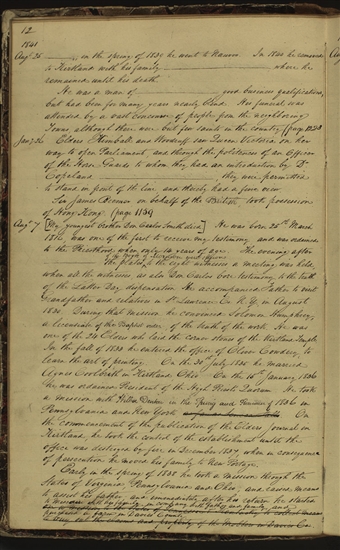 12
1841
Augt. 25 in the spring of 1839 he went to Nauvoo. In 1840 he removed
to Kirtland with his family where he
remained until his death
He was a man of good business qualifications,
but had been for many years nearly blind. His funeral was
attended by a vast concourse of people from the neighboring
Towns although there were but few saints in the country
Jany. 26 Elders Kimball and Woodruff saw Queen Victoria on her
way to open Parliament, and through the politeness of an Officer
of the Horse Guards to whom they had an introduction by Dr
Copeland they were permitted
to stand in front of the line and thereby had a fine view
Sir James Bremer on behalf of the British, took possession
of Hong Kong. (page 1139)
Augt. 7 My youngest brother Don Carlos Smith died He was born 25th March
1816, was one of the first to receive my testimony, and was ordained
to the Priesthood when only 14 years of age. The evening after
the plates of the Book of Mormon were shewn to
the eight witnesses a meeting was held,
when all the witnesses as also Don Carlos bore testimony to the truth
of the Latter Day dispensation He accompanied Father to visit
Grandfather and relatives in St Lawrence Co N. Y. in August
1830 During that mission he convinced Solomon Humphrey,
a licentiate of the Baptist order of the truth of the work. He was
one of the 24 Elders who laid the corner stones of the Kirtland Temple
In the fall of 1833 he entered the office of Oliver Cowdery, to
learn the art of printing. On the 30th July 1835 he married
Agnes Coolbrith in Kirtland Ohio On the 15th January 1836
he was ordained President of the High Priests Quorum He took
a mission with Wilber Denton in the Spring and Summer of 1836 in
Pennsylvania and New York
On the commencement of the publication of the Elders Journal in
Kirtland, he took the control of the establishment until the
office was destroyed by fire in December 1837, when in consequence
of persecution he moved his family to New Portage.
Early in the spring of 1838 he took a mission through the
States of Virginia, Pennsylvania and Ohio, and raised means
to assist his father, and immediately after his return he started
to Missouri with his family